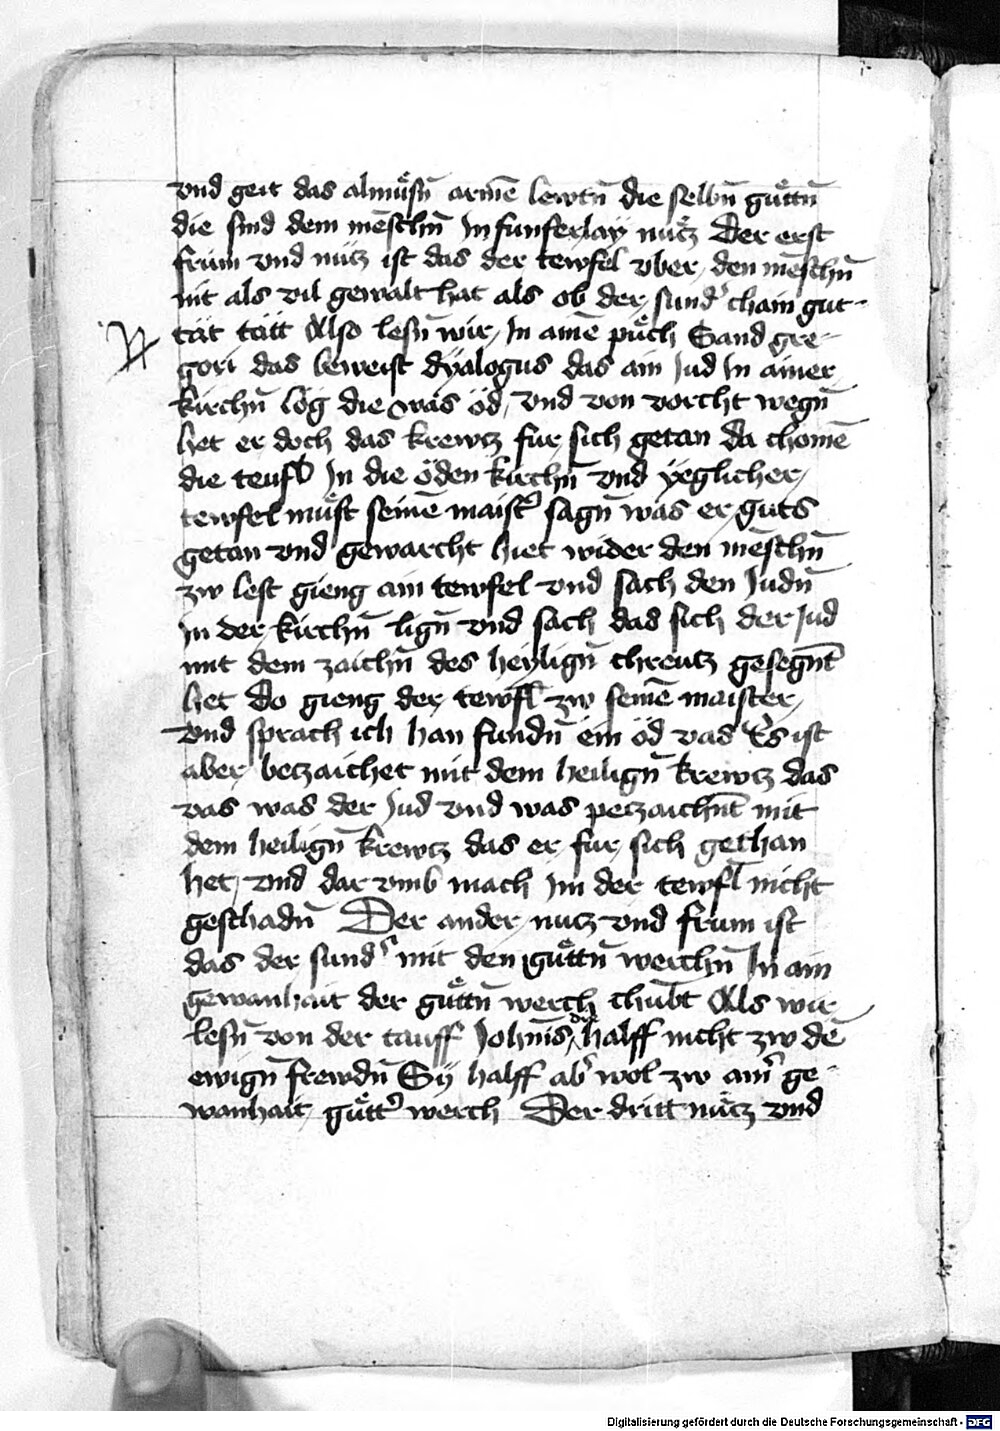 vnd geit das almůsñ armē lewtñ die selbñ gůttñ
die sind dem mēschñ Jn funferlaÿ nůtz Der erst
frum vnd nůtz ist das der tewfel vber den mēschñ
nit als vil gewalt hat als ob der sund' chain gut-
tät tätt Also lesñ wir Jn ainē půch Sand gre-
gori das beweist dÿalogus das ain Jud Jn ainer
kirchñ lög die was öd vnd von vorcht wegñ
het er doch das krewtz fur sich getan da chomē
die teufl Jn die öden kirchñ vnd ÿeglicher
tewfel můst seinē maist' sagñ was er guts
getan vnd gewarcht hiet wider den mēschñ
zw lest gieng ain tewfel vnd sach den Judñ
Jn der kirchñ ligñ vnd sach das sich der Jud
mit dem zaichñ des heÿligñ chreutz gesegnt
het Do gieng der tewfl zw seinē maister
vnd sprach ich han fundñ ein öd vas Es ist
aber betzaichet mit dem heiligñ krewtz das
vas was der Jud vnd was petzaichnt mit
dem heiligñ krewtz das er fur sich gethan
het vnd dar vmb mach im der tewfl nicht
geschadñ Der ander nutz vnd frum ist
das der sund' mit den gůttñ werchñ Jn ain
gewanhait der gůttñ werch chūbt Als wir
lesñ von der tauff Johñis die halff nicht zw dē
ewigñ frewdñ Sÿ halff ab' wol zw ain' ge-
wanhait gůtt' werch Der dritt nůtz vnd
Digitalisierung gefördert durch die Deutsche Forschungsgemeinschaft - DFG